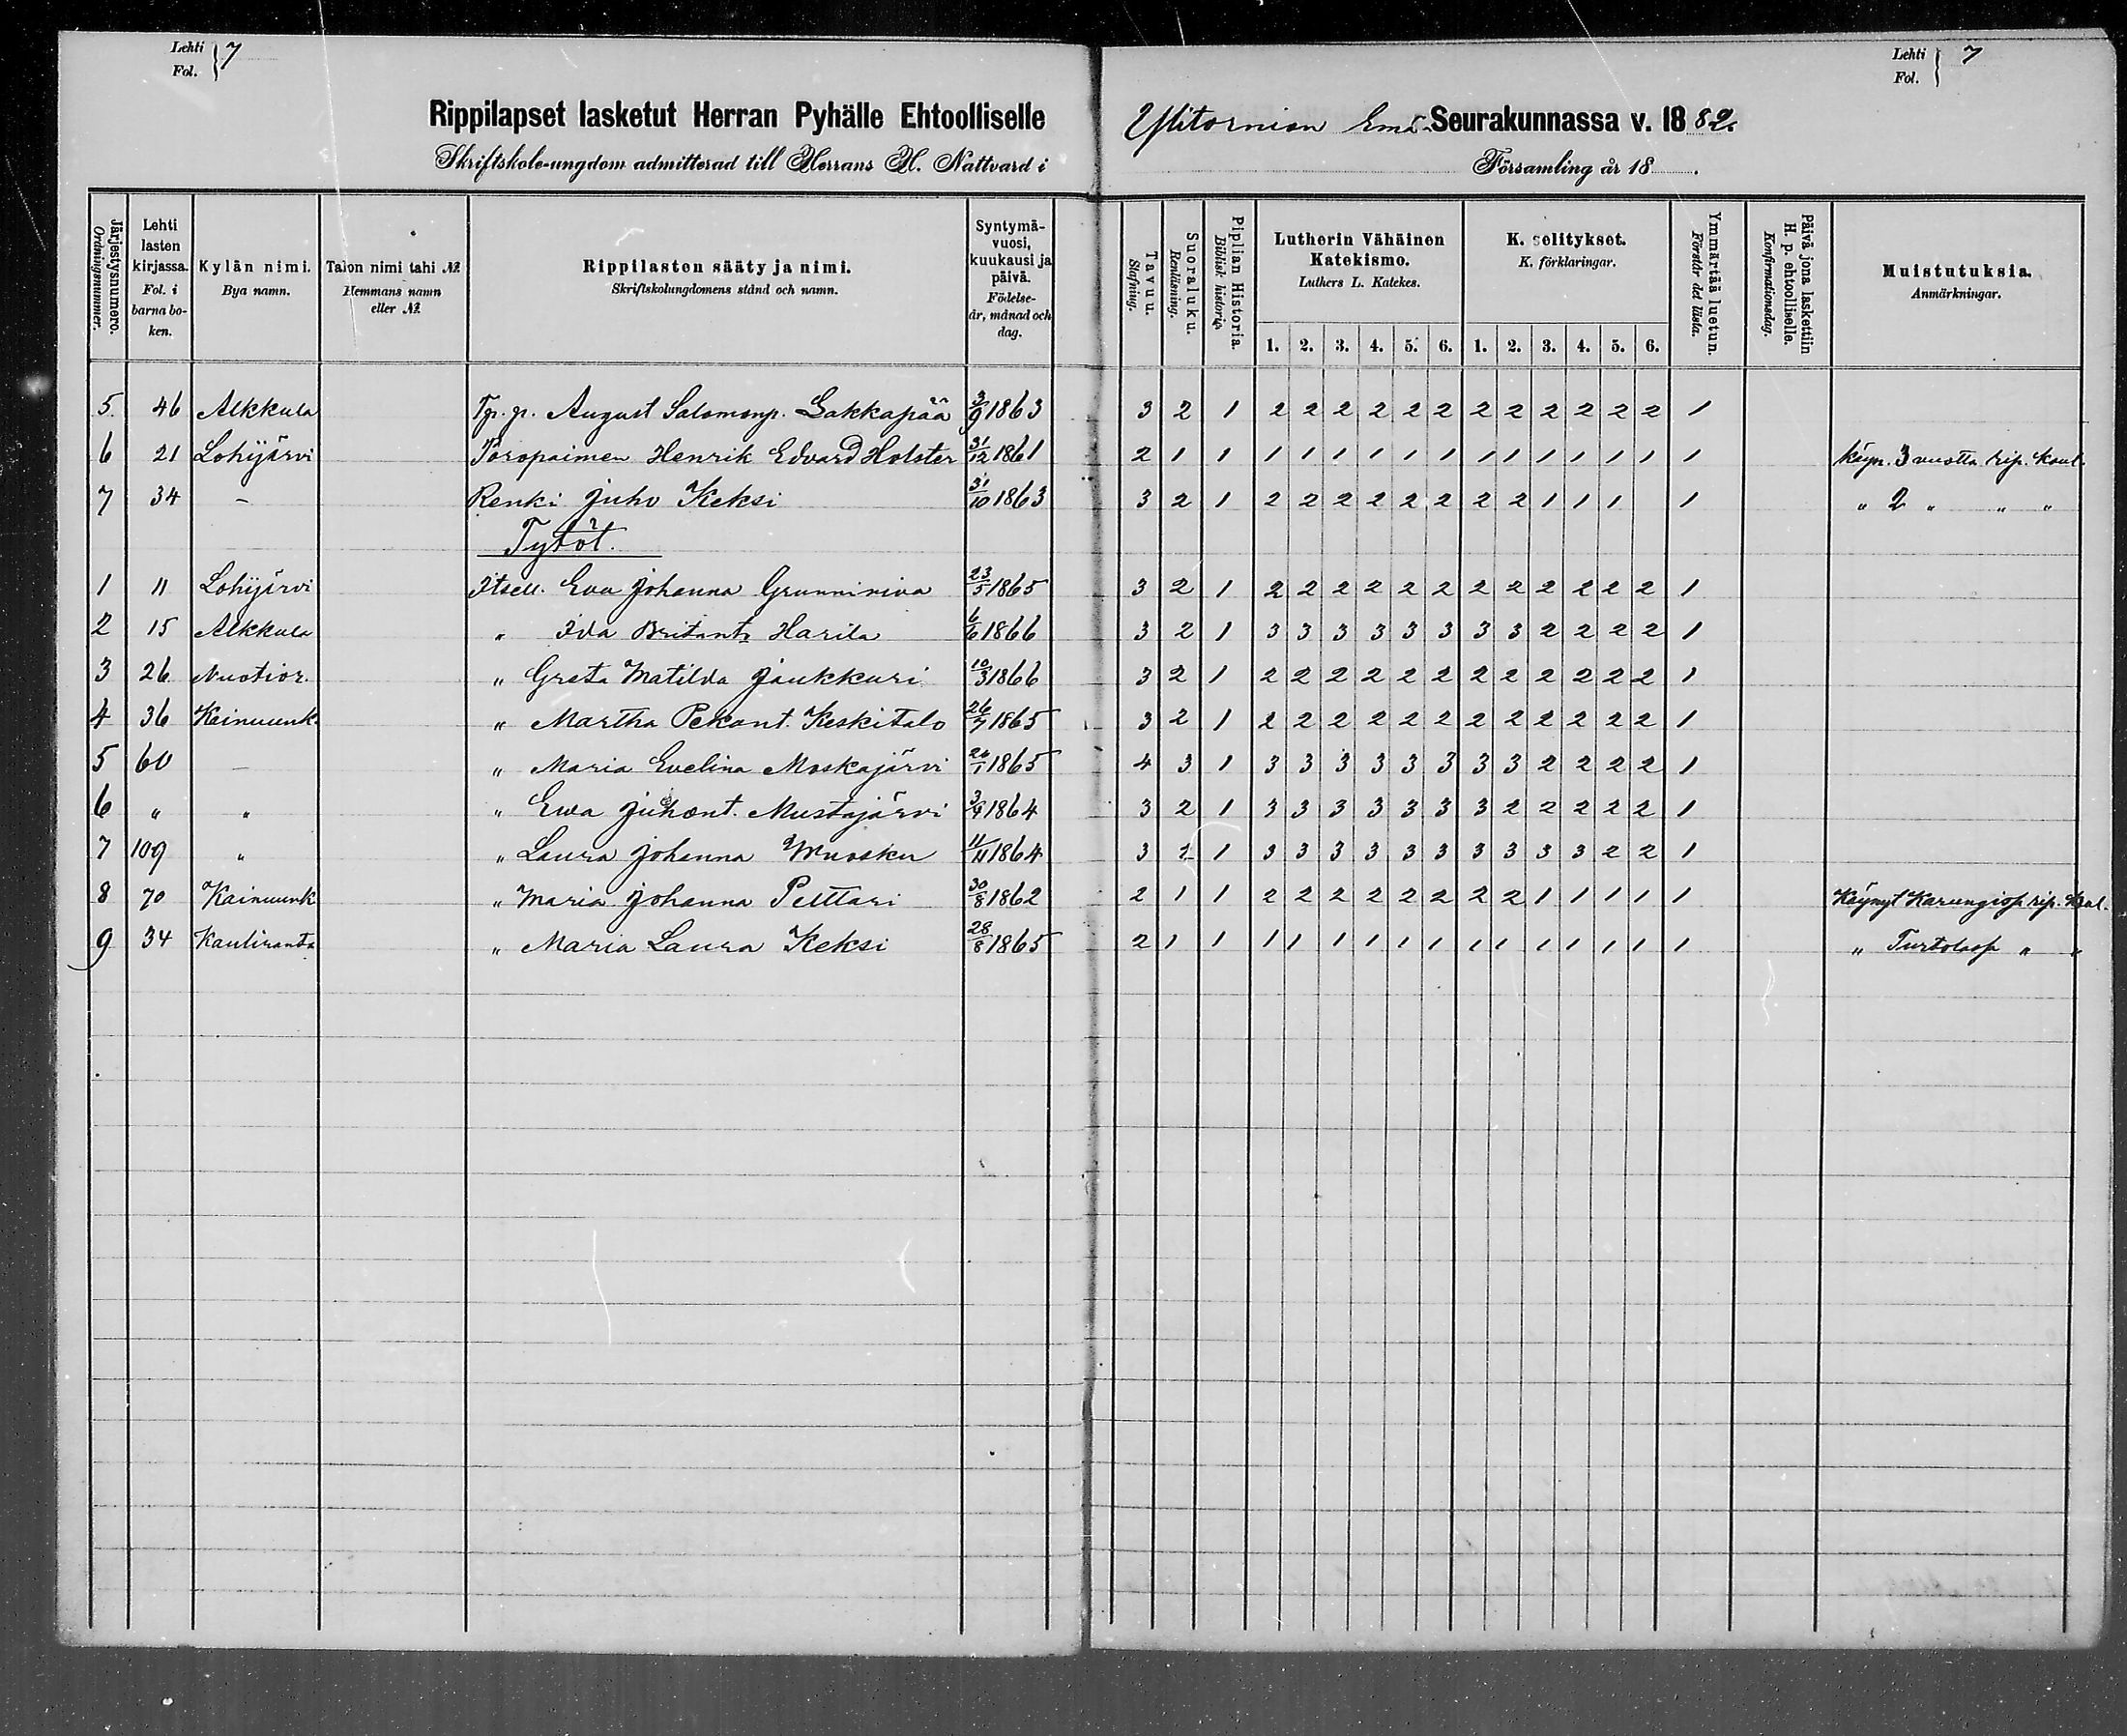 Lehti 7
Fol.
Lehti 7
Fol.
Rippilapset lasketut Herran Pyhälle Ehtoolliselle Ylitornion Emä-Seurakunnassa v. 1882.
Skriftskole-ungdom admitterad till Herrans H. Nattvard i Församling år 18 .
Järjestysnumero. Ordningsnummer.
Lehti lasten kirjassa. Fol. i barna bo-ken.
Kylän nimi. Bya namn.
Talon nimi tahi № Hemmans namn eller №
Rippilasten sääty ja nimi. Skriftskolungdomens stånd och namn.
Syntymä-vuosi, kuukausi ja päivä. Födelse-år, månad och dag.
Tavuu. Stafning.
Suoraluku. Renläsning.
Piplian Historia. Biblisk historia.
Lutherin Vähäinen Katekismo. Luthers L. Katekes.
K. selitykset. K. förklaringar.
Ymmärtää luetun. Förstår det lästa.
Päivä jona laskettiin H. p. ehtoolliselle. Konfirmationsdag.
Muistutuksia. Anmärkningar.
1. 2. 3. 4. 5. 6. 1. 2. 3. 4. 5. 6.
5. 46 Alkkula Tp. p. August Salomonp. Lakkapää 3/9 1863 3 2 1 2 2 2 2 2 2 2 2 2 2 2 2 1
6 21 Lohijärvi Toropainen Henrik Edvard Holster 31/12 1861 2 1 1 1 1 1 1 1 1 1 1 1 1 1 1 1 käyn. 3 vuotta rip. koul.
7 34 - Renki Juho Keksi 31/10 1863 3 2 1 2 2 2 2 2 2 2 2 1 1 1 1 " 2 " " "
Tytöt.
1 11 Lohijärvi Itsell. Eva Johanna Grunniniva 23/5 1865 3 2 1 2 2 2 2 2 2 2 2 2 2 2 2 1
2 15 Alkkula " Ida Britantr Harila 6/6 1866 3 2 1 3 3 3 3 3 3 3 3 2 2 2 2 1
3 26 Nuotior. " Greta Matilda Jaukkuri 10/3 1866 3 2 1 2 2 2 2 2 2 2 2 2 2 2 2 1
4 36 Kainuunk. " Martha Pekant. Keskitalo 26/7 1865 3 2 1 2 2 2 2 2 2 2 2 2 2 2 2 1
5 60 - " Maria Evelina Moskajärvi 24/1 1865 4 3 1 3 3 3 3 3 3 3 3 2 2 2 2 1
6 " " " Ewa Juhont. Mustajärvi 3/9 1864 3 2 1 3 3 3 3 3 3 3 2 2 2 2 2 1
7 109 " " Laura Johanna Wuosku 11/11 1864 3 2 1 3 3 3 3 3 3 3 3 3 3 2 2 1
8 70 Kainuunk " Maria Johanna Pelttari 30/8 1862 2 1 1 2 2 2 2 2 2 2 2 1 1 1 1 1 Käynyt Karungisa rip. koul.
9 34 Kauliranta " Maria Laura Keksi 28/8 1865 2 1 1 1 1 1 1 1 1 1 1 1 1 1 1 1 " Turtolasa " "